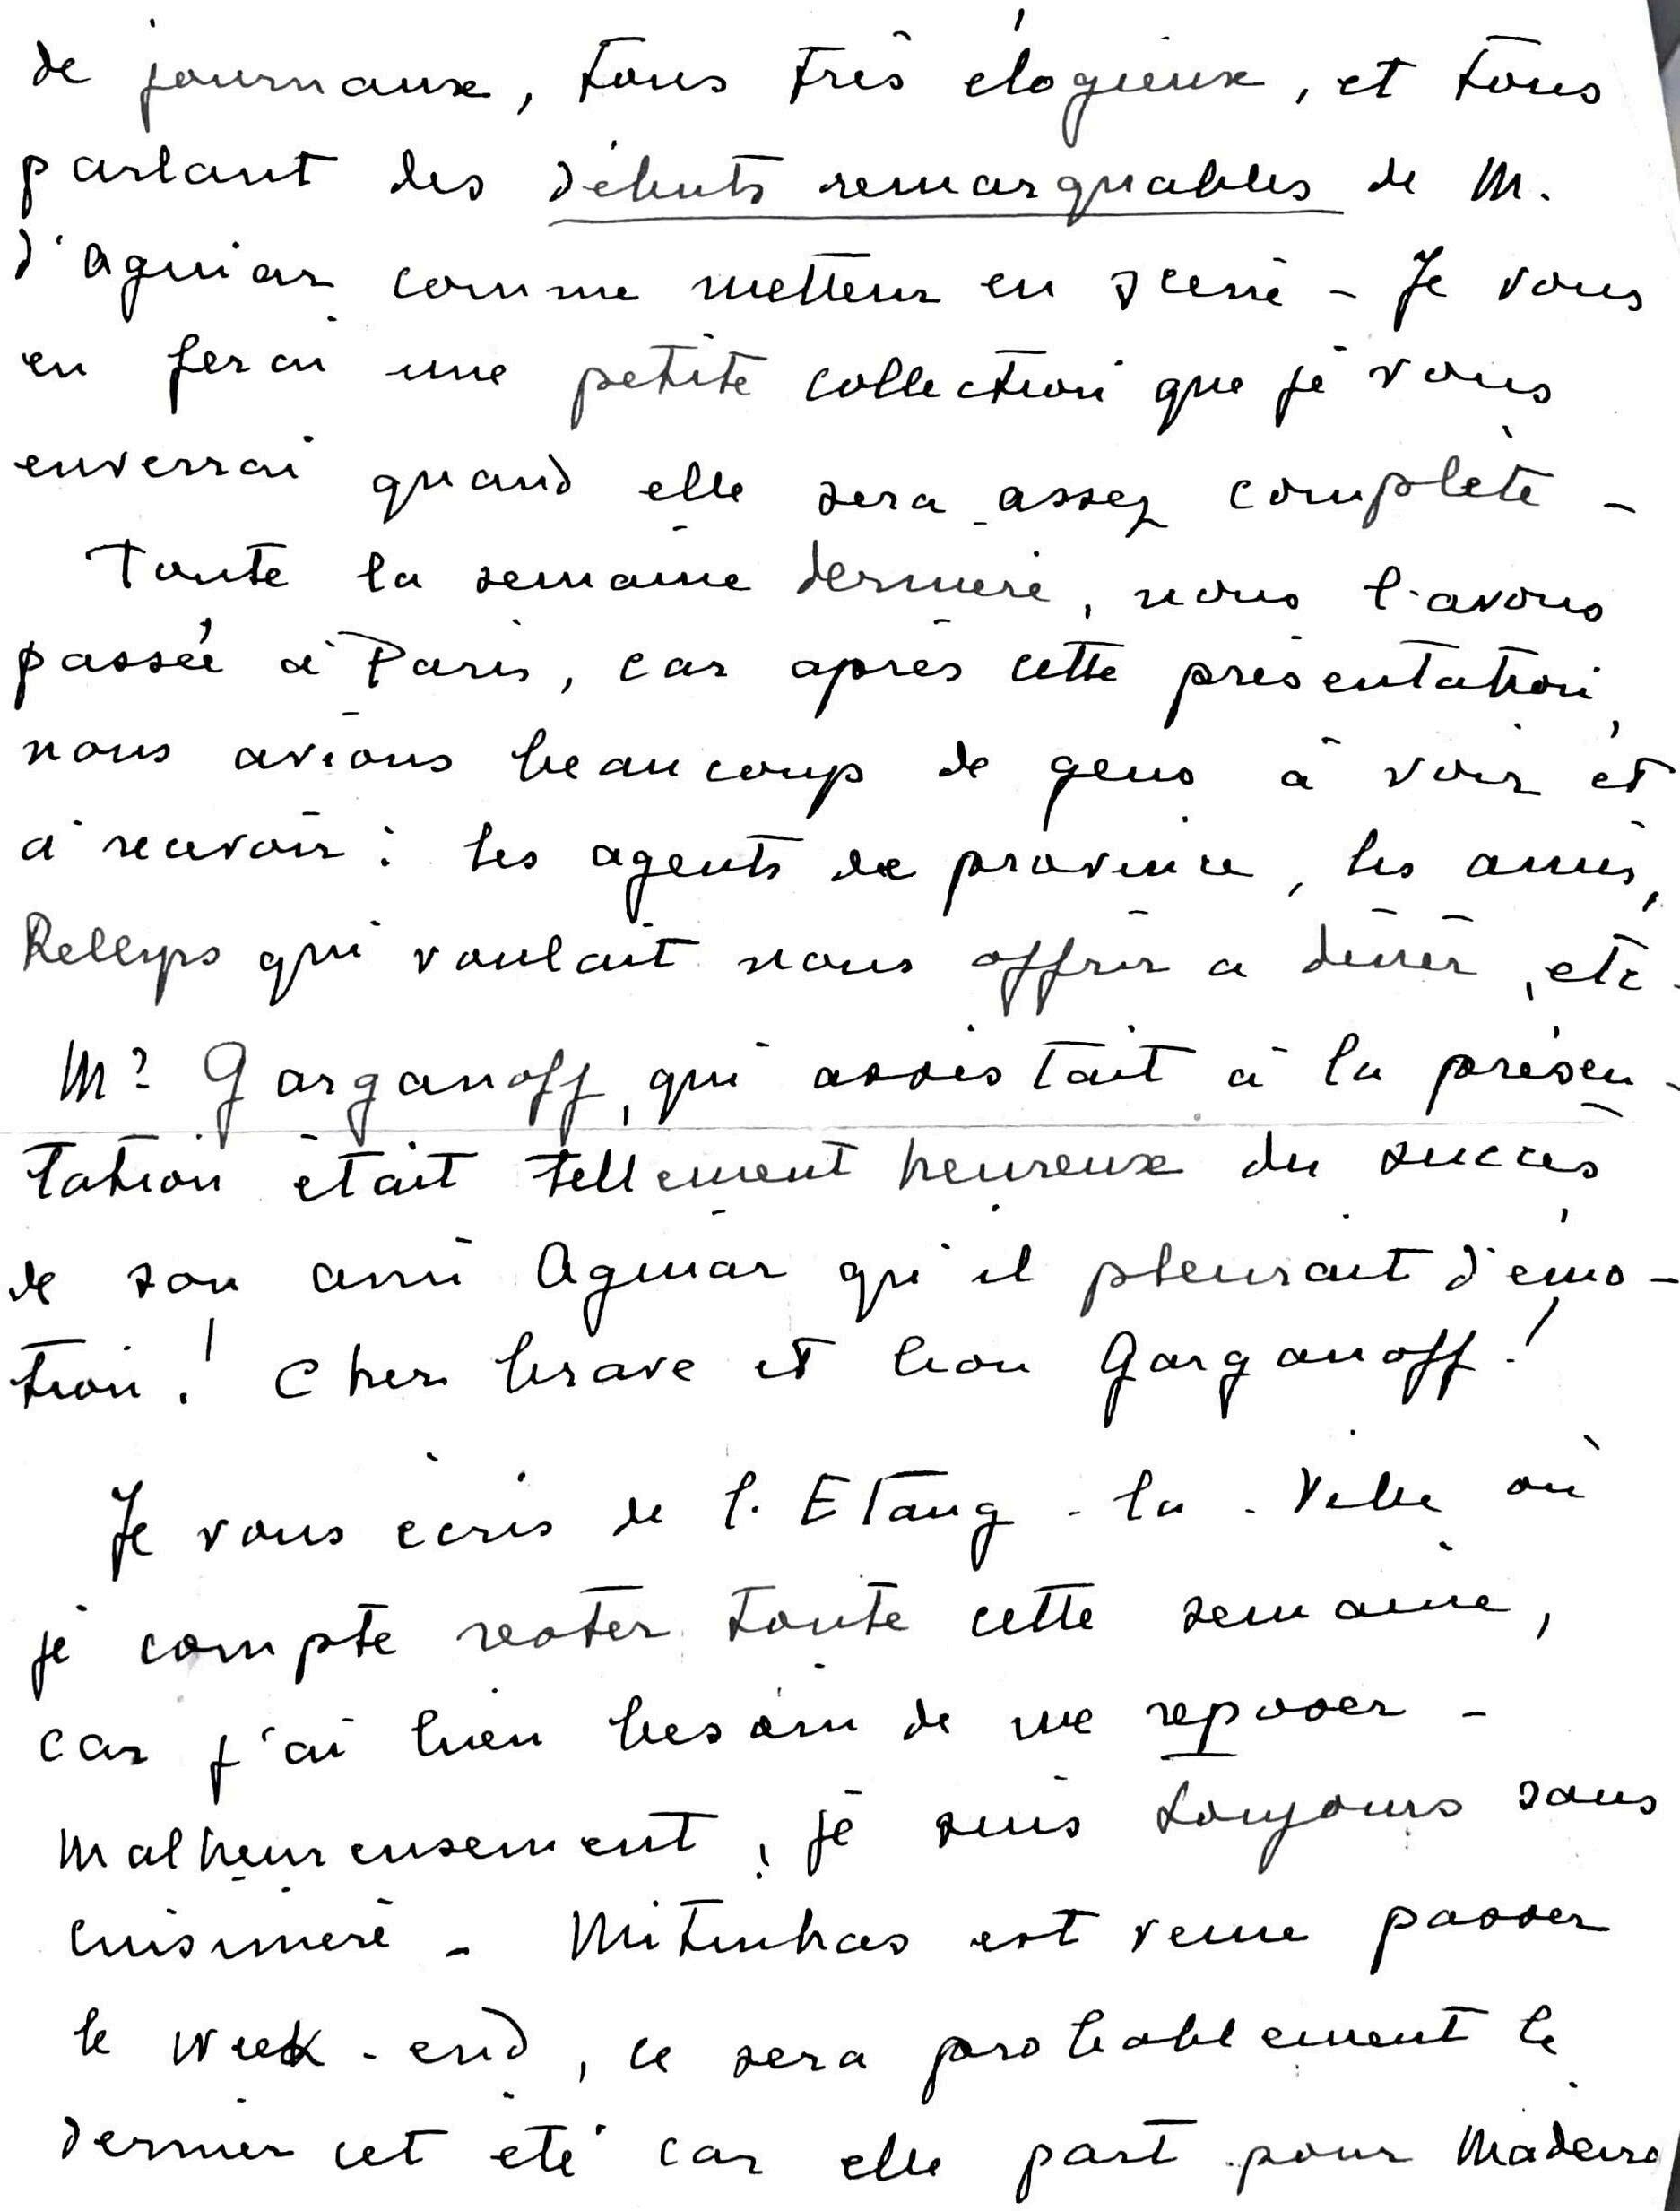 de journaux, tous très élogieux, et tous
parlant des débuts remarquables de M.
d'Aguiar comme metteur en scène - Je vous
en ferai une petite collection que je vous
enverrai quand elle sera assez complète -
Toute la semaine dernière, nous l'avons
passée à Paris, car après cette présentation,
nous avions beaucoup de gens à voir et
à recevoir : les agents de province, les amis,
qui voulait nous offrir à dîner, etc.
Mr Garganoff, qui assistait à la présen-
tation était tellement heureux du succès
de son ami Aguiar qu'il pleurait d'émo-
tion ! Cher brave et bon Garganoff !
Je vous écris de l'Etang-la-Ville où
je compte rester toute cette semaine,
car j'ai bien besoin de me reposer -
Malheureusement, je suis toujours sans
cuisinière - Mitinhas est venue passer
le week-end, ce sera probablement le
dernier cet été car elle part pour Madeira